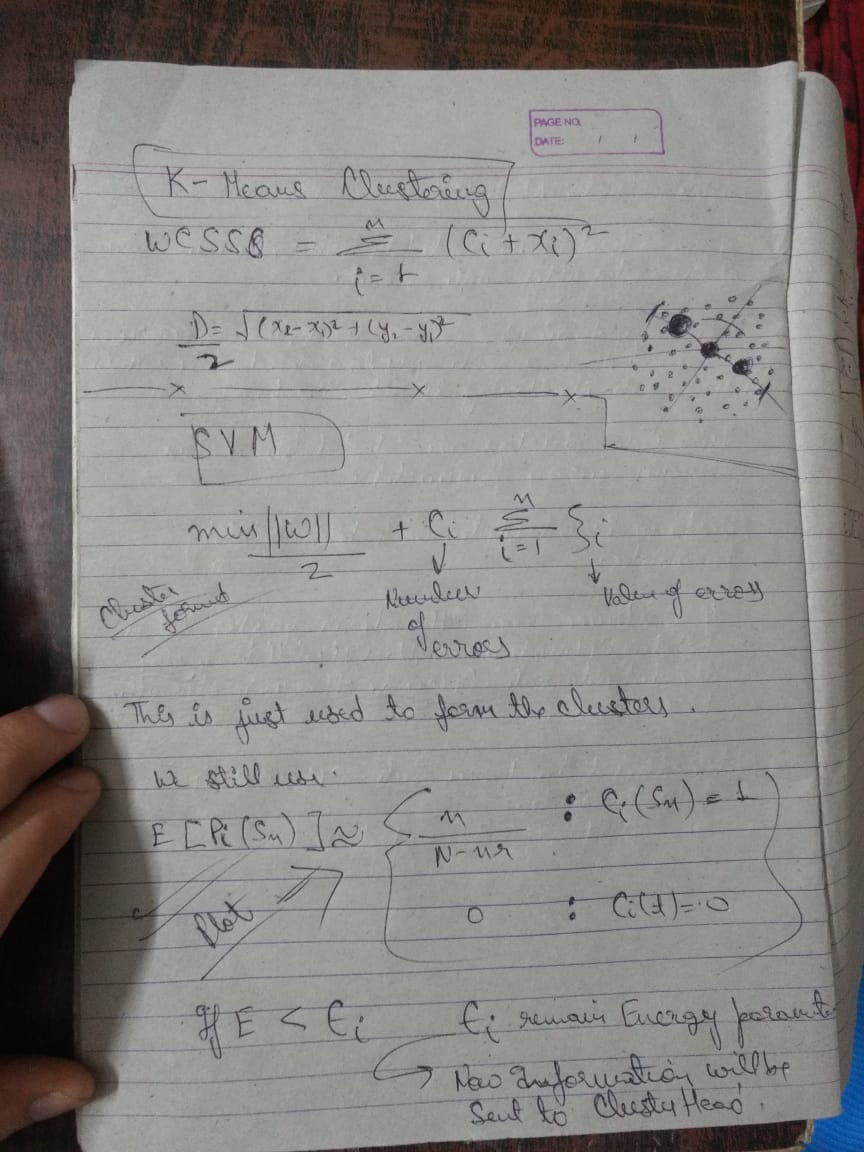 PAGE NO.
DATE: / /
K-Means Clustering
WCSSB = n Σ i=1 (Ci + xi)²
D/2 = √(x2-x1)² + (y2-y1)²
SVM
min ||W||/2 + Ci n Σ i=1 ξi
Cluster format
Number of errors
Value of errors
This is just used to form the clusters.
We still use.
E[Pi(Sn)] ≈ { n/N-nr : Ci(Sn) = 1
0 : Ci(t) = 0 }
Plot
If E < Ei
Ei remain Energy
Now Information will be
Sent to Cluster Head.